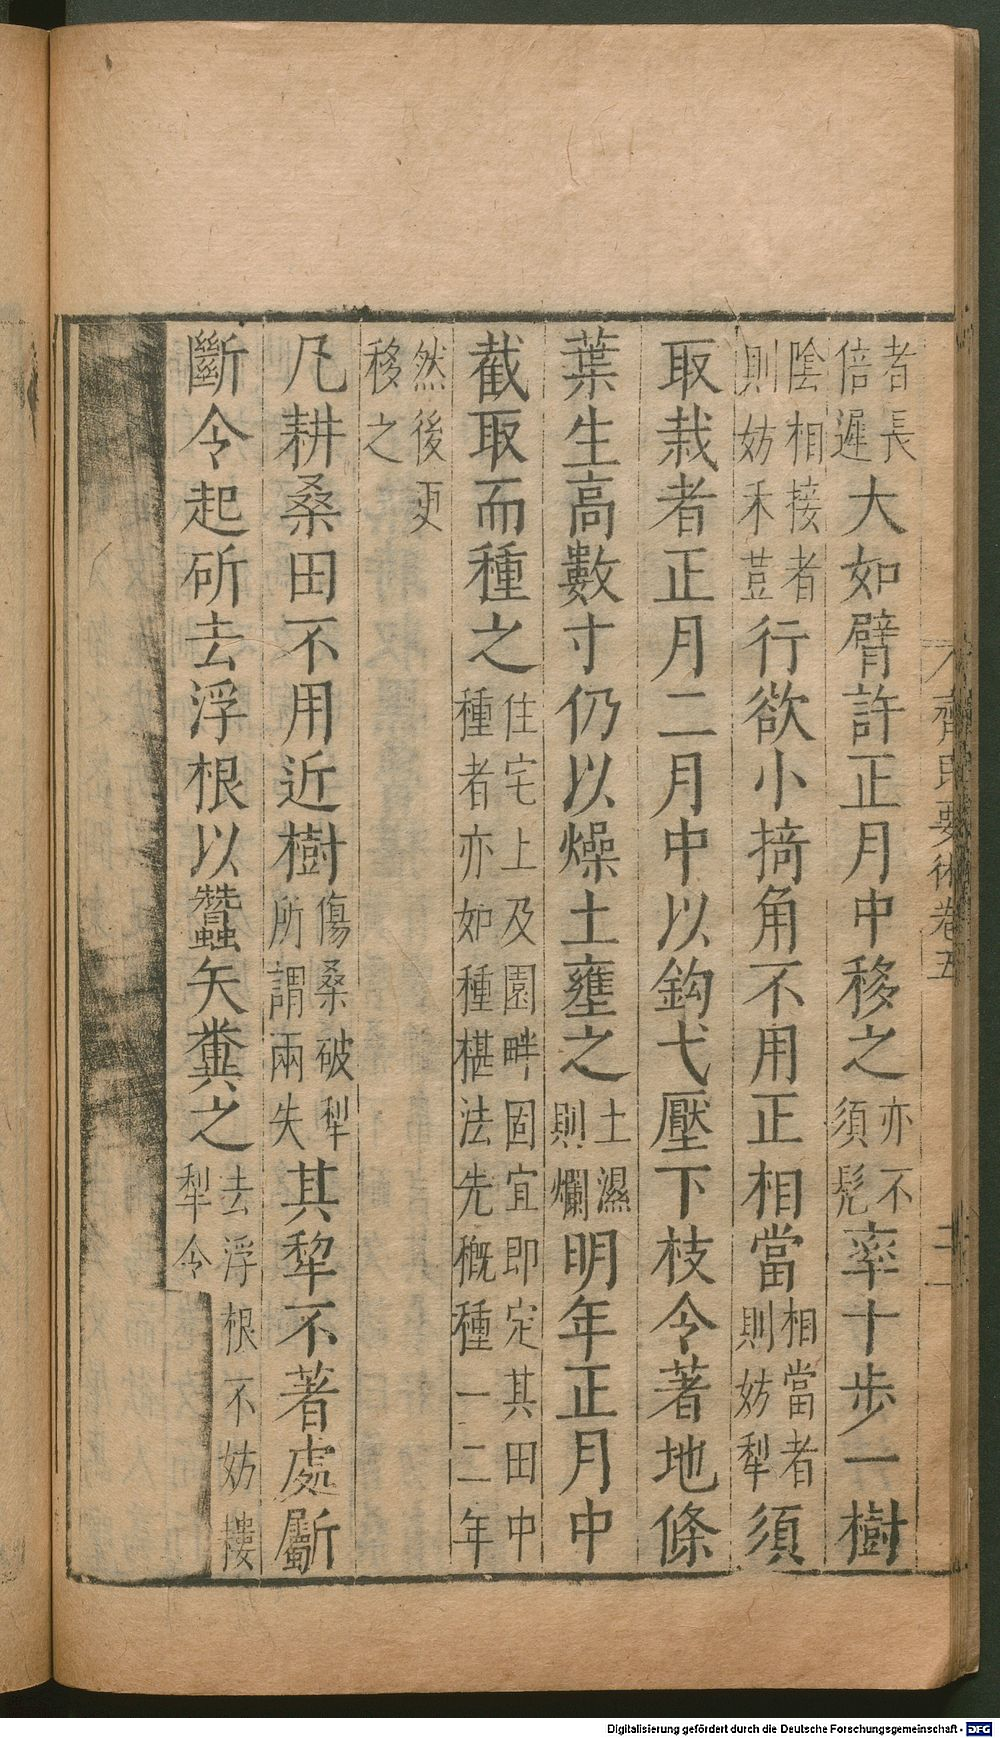 齊民要術卷五
者長倍遲大如臂許正月中移之亦不須髡率十步一樹
陰相接者則妨禾荳行欲小掎角不用正相當相當者則妨犁須
取栽者正月二月中以鈎弋壓下枝令著地條
葉生高數寸仍以燥土壅之土濕則爛明年正月中
截取而種之住宅上及園畔固宜即定其田中種者亦如種椹法先穊種一二年
然後更移之
凡耕桑田不用近樹傷桑破犁所謂兩失其犂不著處斸
斷令起斫去浮根以蠶矢糞之去浮根不妨耬犁令
Digitalisierung gefördert durch die Deutsche Forschungsgemeinschaft - DFG